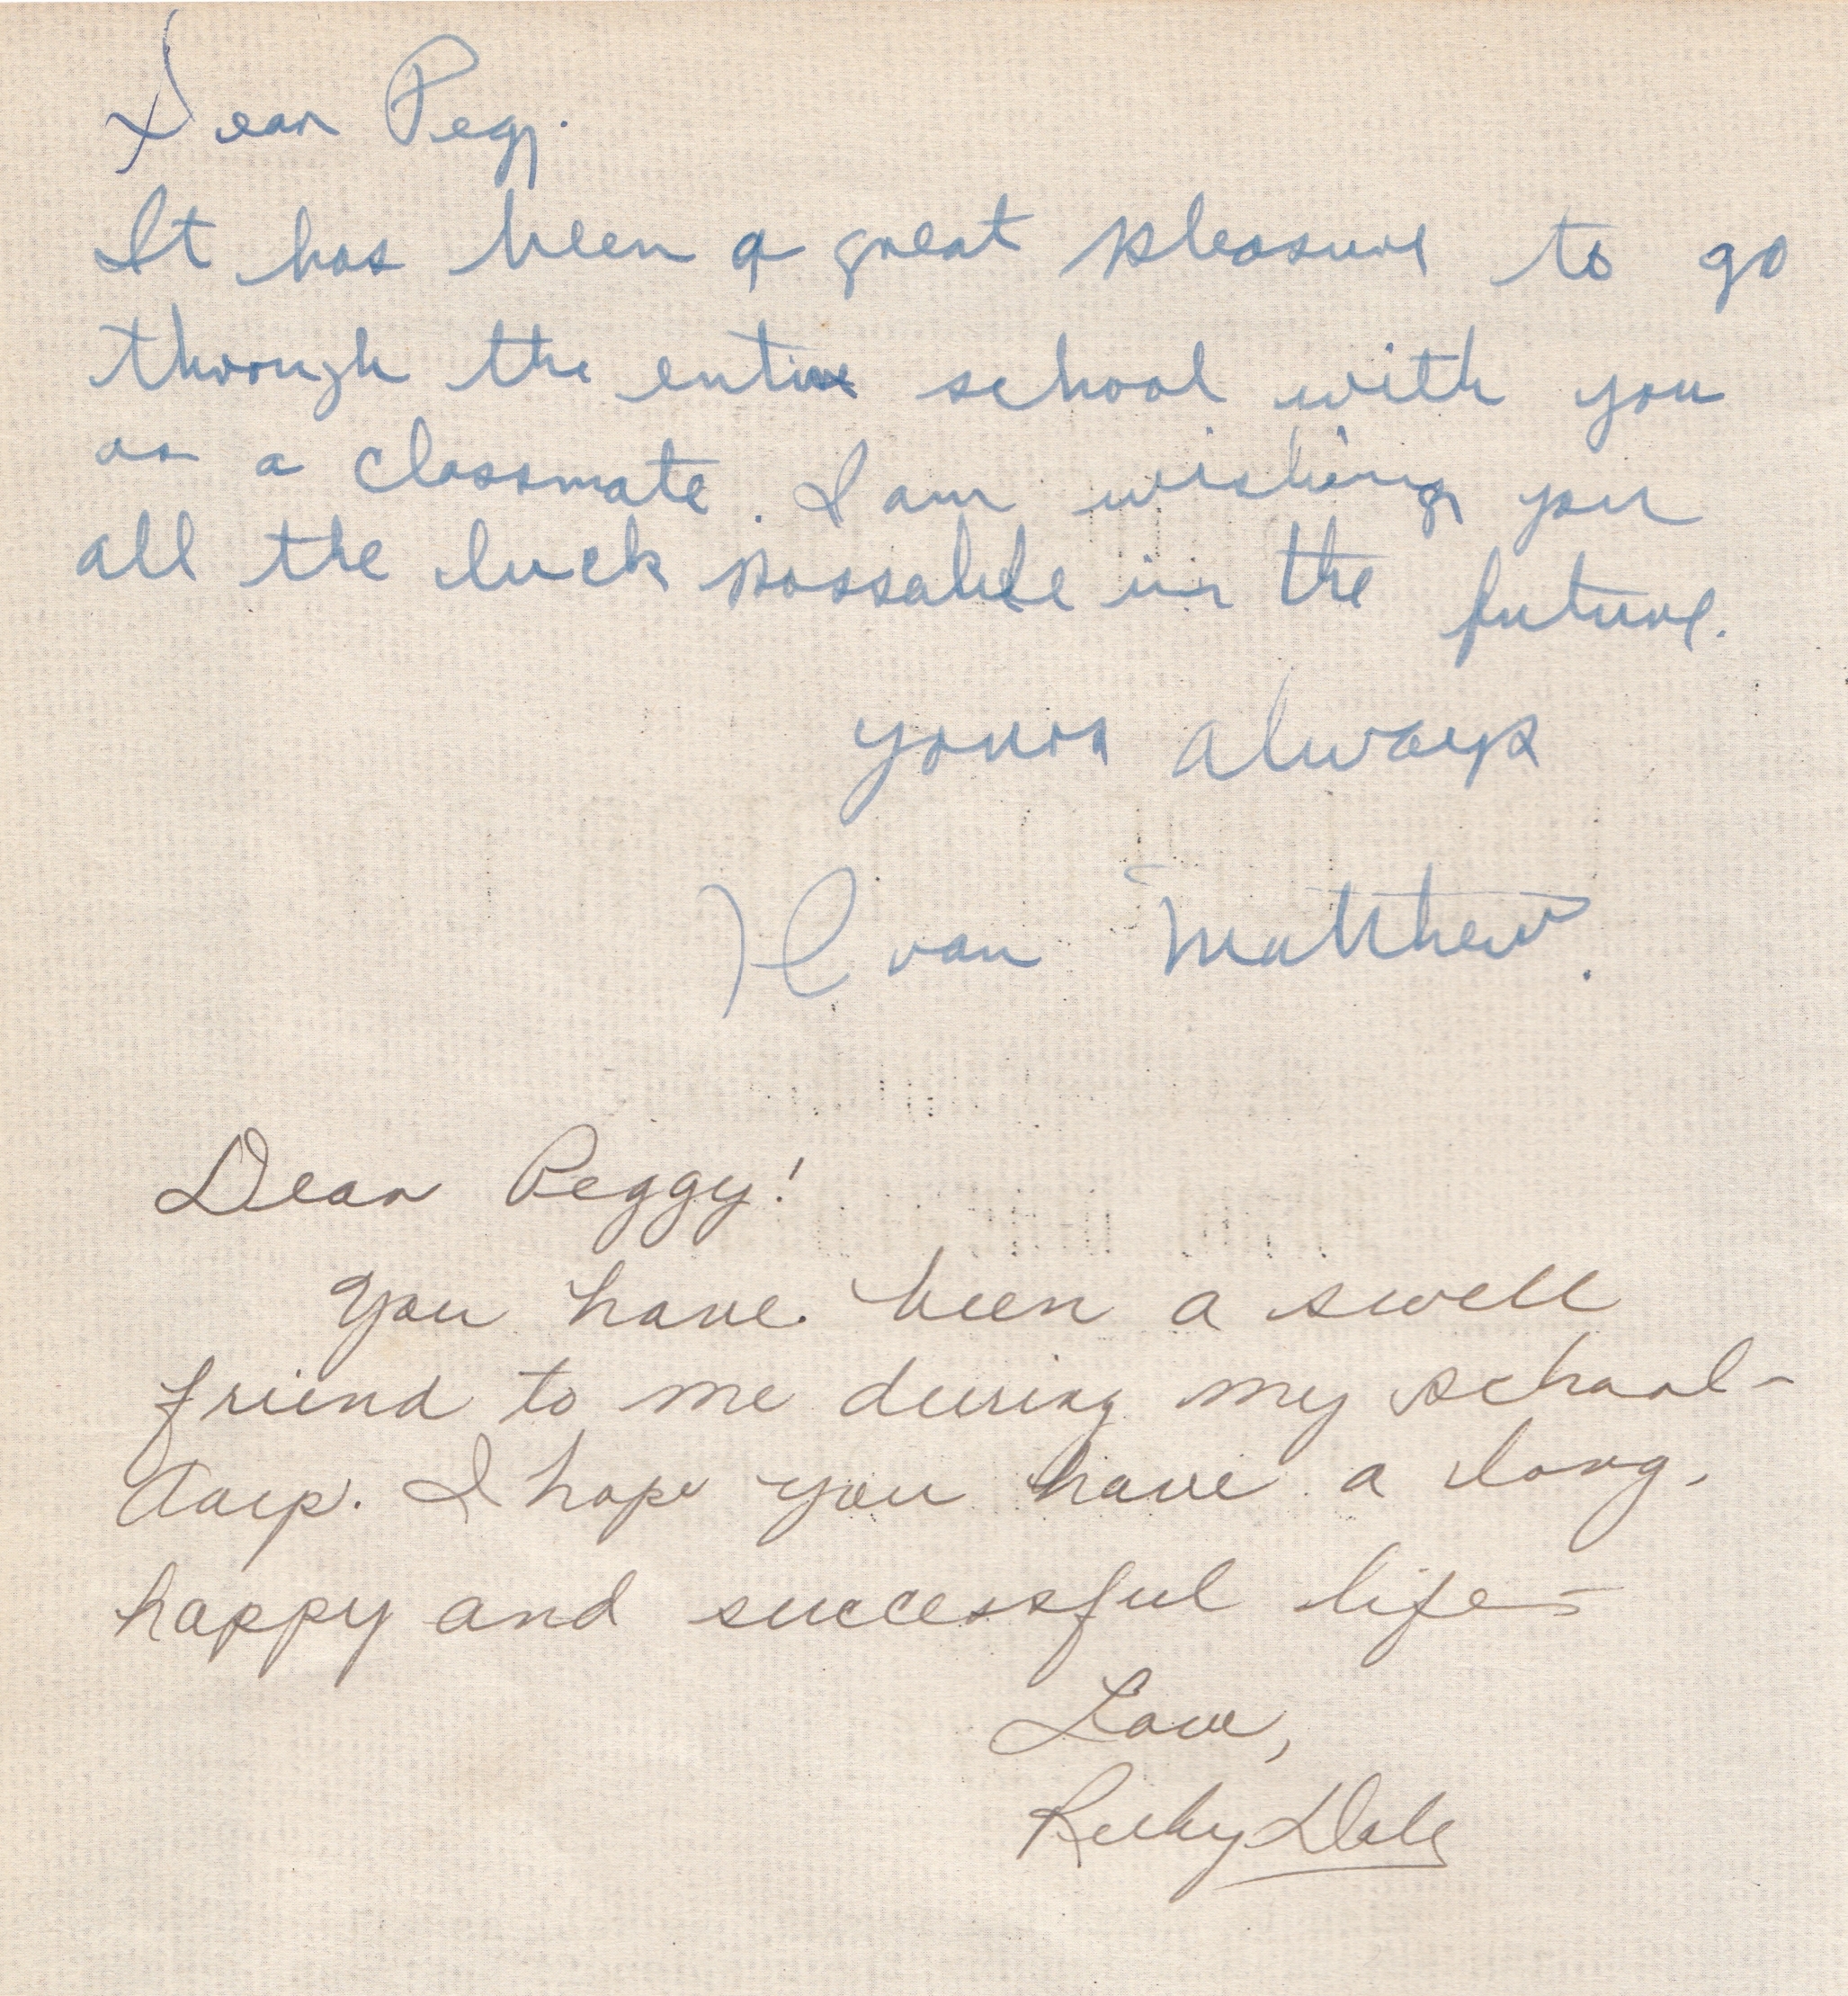 Dear Peg.
It has been a great pleasure to go
through the entire school with you
as a classmate. I am wishing you
all the luck possable in the future.
yours always
Matthew.
Dear Peggy!
You have been a swell
friend to me during my school-
days. I hope you have a long,
happy and successful life-
Love,
Ruby Dale